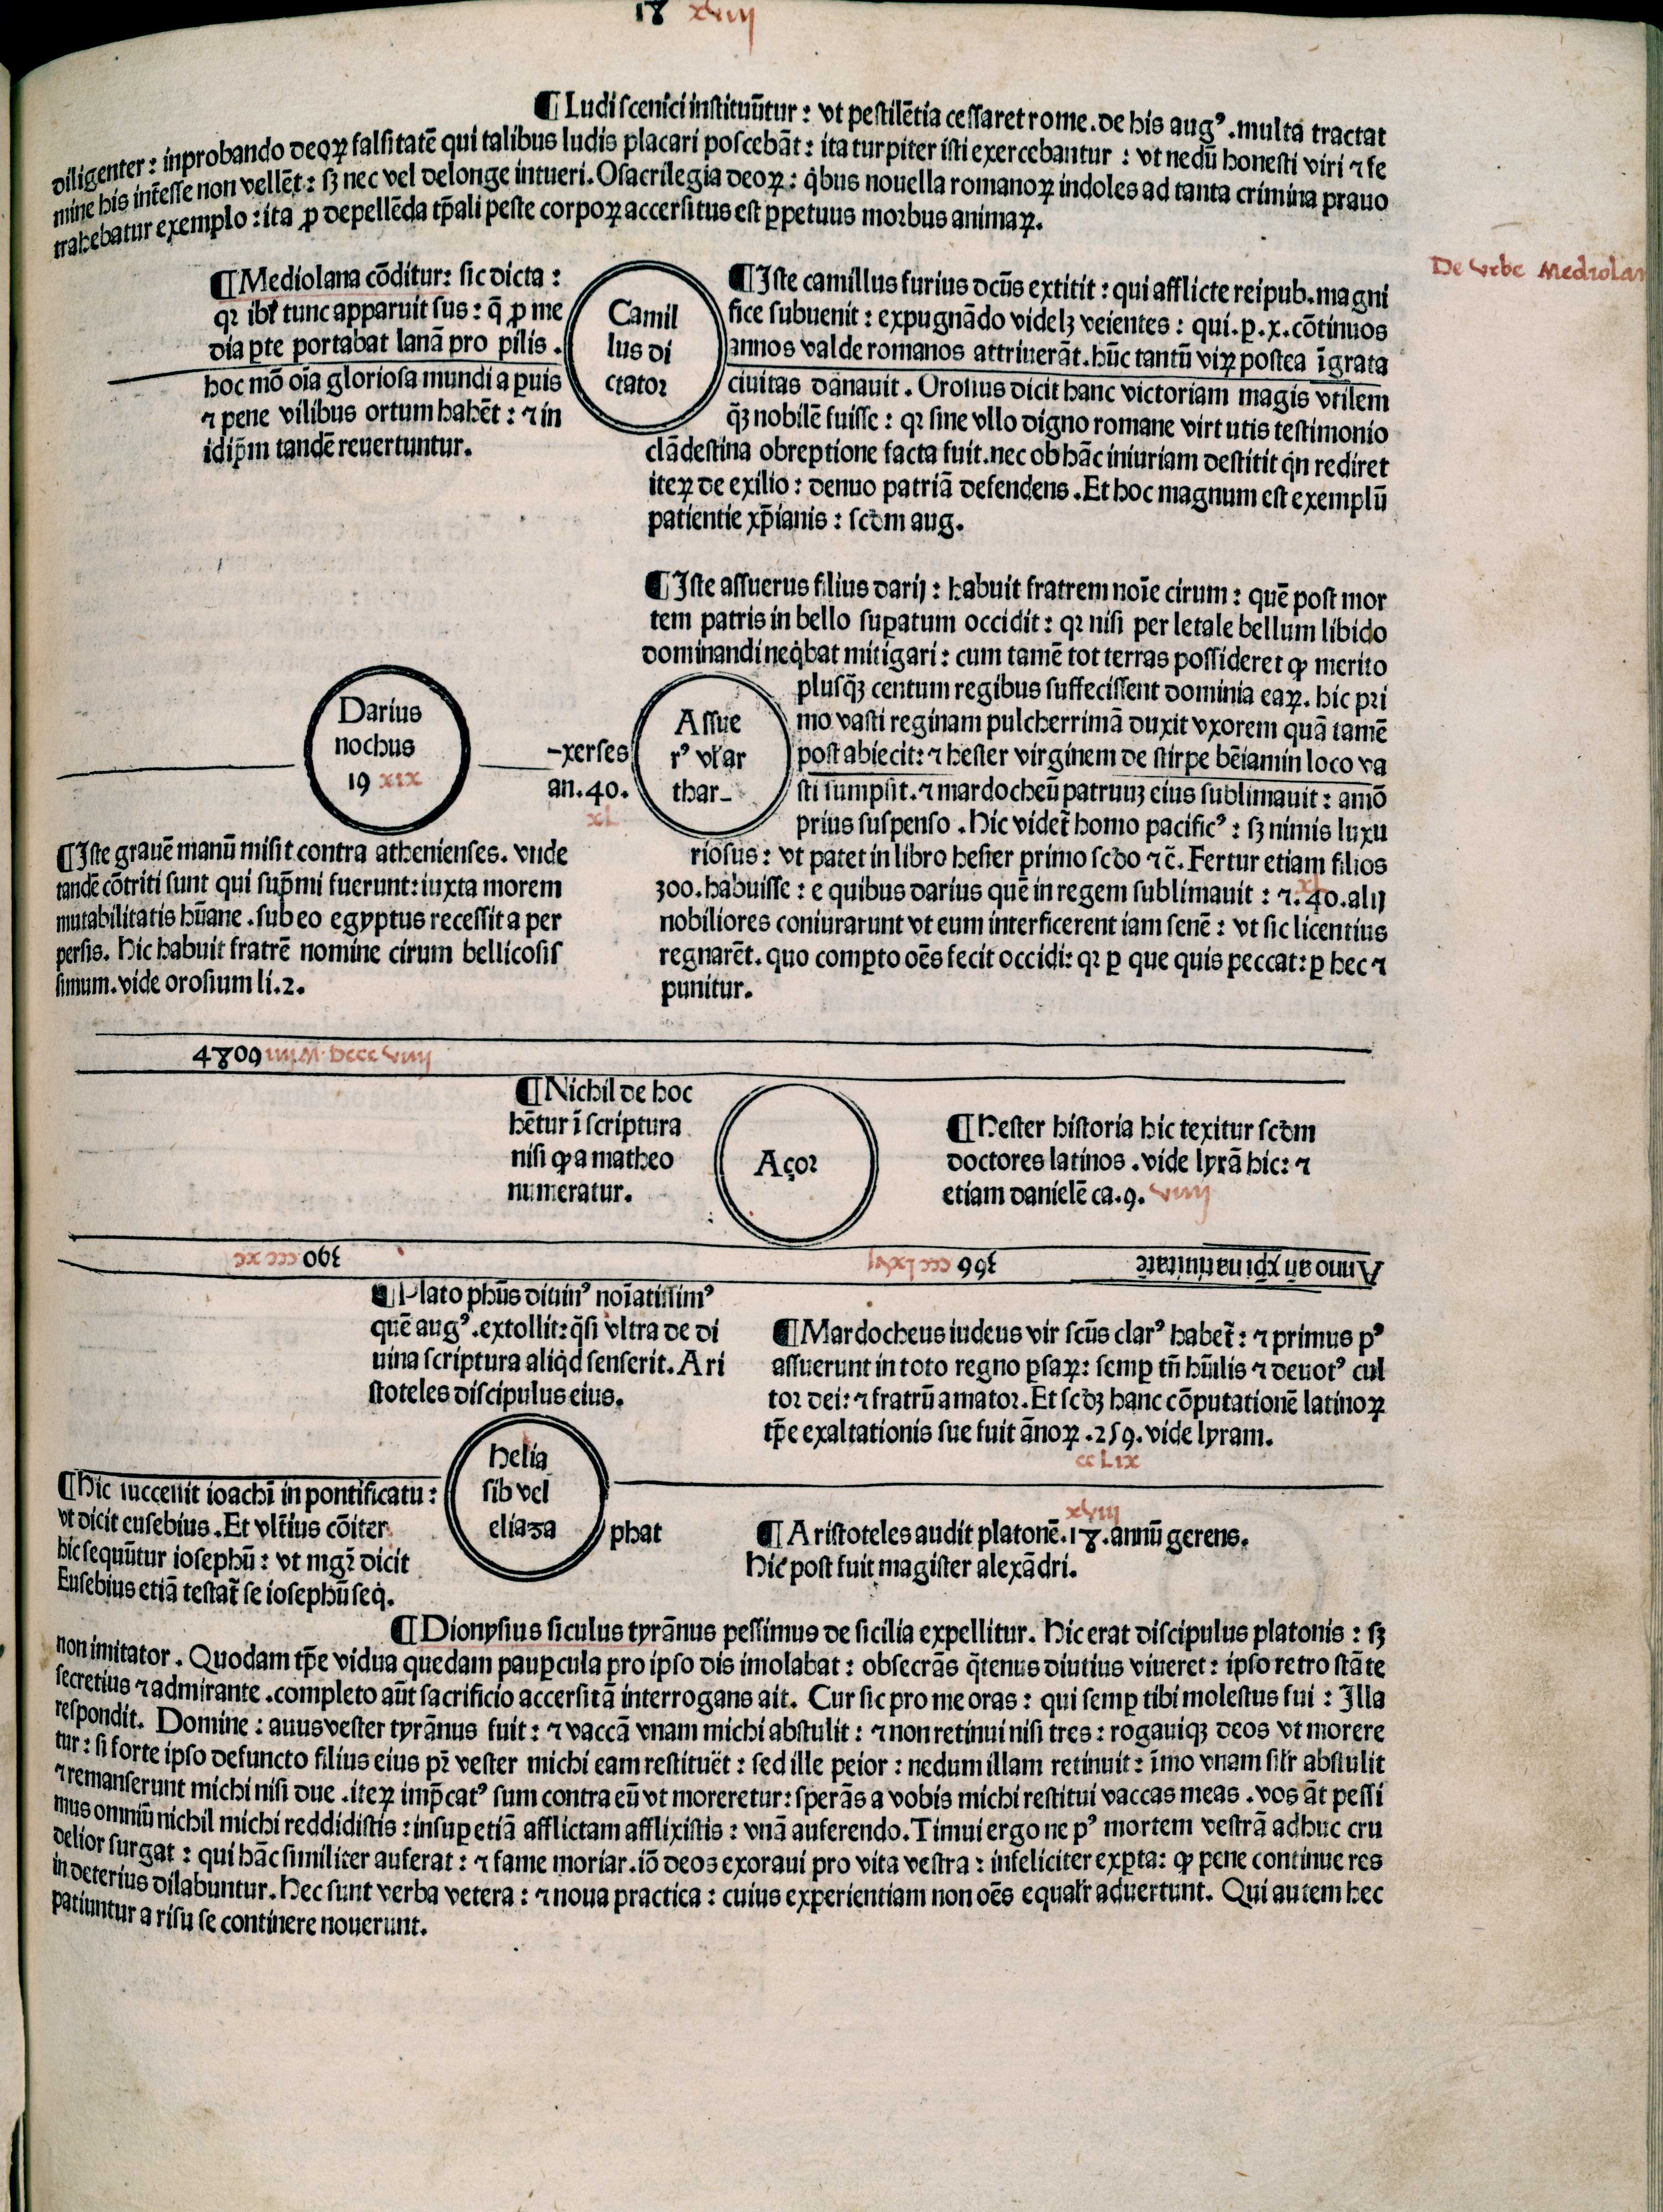 18 xviij
¶Ludi scenici instituūtur : vt pestilētia cessaret rome. de his augꝰ. multa tractat
diligenter : inprobando deoꝝ falsitatē qui talibus ludis placari poscebāt : ita turpiter isti exercebantur : vt nedū honesti viri ⁊ fe
mine his int̄esse non vellēt : sꝫ nec vel delonge intueri. O sacrilegia deoꝝ : q̇bus nouella romanoꝝ indoles ad tanta crimina prauo
trahebatur exemplo : ita ꝓ depellēda tp̄ali peste corpoꝝ accersitus est ꝑpetuus morbus animaꝝ.
¶Mediolana cōditur : sic dicta :
qꝛ ibi tunc apparuit sus : q̄ ꝓ me
dia ꝑte portabat lanā pro pilis.
hoc mō oīa gloriosa mundi a puis
⁊ pene vilibus ortum habēt : ⁊ in
idip̄m tandē reuertuntur.
Camil
lus di
ctator
¶Iste camillus furius dcūs extitit : qui afflicte reipub. magni
fice subuenit : expugnādo videlꝫ veientes : qui. p. x. cōtinuos
annos valde romanos attriuerāt. hūc tantū viꝝ postea īgrata
ciuitas dānauit. Orosius dicit hanc victoriam magis vtilem
q̄ꝫ nobilē fuisse : qꝛ sine vllo digno romane virtutis testimonio
clādestina obreptione facta fuit. nec ob hāc iniuriam destitit q̇n rediret
iteꝝ de exilio : denuo patriā defendens. Et hoc magnum est exemplū
patientie xp̄ianis : scd̄m aug.
De vrbe Mediolan
¶Iste assuerus filius darij : habuit fratrem noīe cirum : quē post mor
tem patris in bello suꝑatum occidit : qꝛ nisi per letale bellum libido
dominandi neq̇bat mitigari : cum tamē tot terras possideret ꝙ merito
plusq̄ꝫ centum regibus suffecissent dominia eaꝝ. hic pri
mo vasti reginam pulcherrimā duxit vxorem quā tamē
post abiecit : ⁊ hester virginem de stirpe bēiamin loco va
sti sumpsit. ⁊ mardocheū patruuꝫ eius sublimauit : amō
prius suspenso. Hic videt̄ homo pacificꝰ : sꝫ nimis luxu
riosus : vt patet in libro hester primo scd̄o ⁊ c̄. Fertur etiam filios
300. habuisse : e quibus darius quē in regem sublimauit : ⁊. 40. alij
xl
nobiliores coniurarunt vt eum interficerent iam senē : vt sic licentius
regnarēt. quo comꝑto oēs fecit occidi : qꝛ ꝑ que quis peccat : ꝑ hec ⁊
punitur.
Darius
nochus
19 xix
-xerses
an. 40.
xl
Assue
rꝰ vl̄ ar
thar-
¶Iste grauē manū misit contra athenienses. vnde
tandē cōtriti sunt qui sup̄mi fuerunt : iuxta morem
mutabilitatis hūane. sub eo egyptus recessit a per
persis. Hic habuit fratrē nomine cirum bellicosis
simum. vide orosium li. 2.
4809 iiijM. Dccc viiij
¶Nichil de hoc
hētur ī scriptura
nisi ꝙ a matheo
numeratur.
Açor
¶Hester historia hic texitur scd̄m
doctores latinos. vide lyrā hic : ⁊
etiam danielē ca. 9. viiij
Anno añ xp̄i natiuitatē
366 ccc lxvj
390 ccc xc
¶Plato phūs diuinꝰ noīatissimꝰ
quē augꝰ. extollit : q̄si vltra de di
uina scriptura aliq̇d senserit. Ari
stoteles discipulus eius.
¶Mardocheus iudeus vir scūs clarꝰ habet̄ : ⁊ primus pꝰ
assuerunt in toto regno ꝑsaꝝ : semꝑ tn̄ hūilis ⁊ deuotꝰ cul
tor dei : ⁊ fratrū amator. Et scdꝫ hanc cōputationē latinoꝝ
tp̄e exaltationis sue fuit ānoꝝ. 259. vide lyram.
cc Lix
Helia
sib vel
eliaza
phat
¶Hic successit ioachī in pontificatu :
vt dicit eusebius. Et vlt̄ius cōiter
hic sequūtur iosephū : vt mgr̄ dicit
Eusebius etiā testat̄ se iosephū seq̇.
xviij
¶Aristoteles audit platonē. 18. annū gerens.
Hic post fuit magister alexādri.
¶Dionysius siculus tyrānus pessimus de sicilia expellitur. Hic erat discipulus platonis : sꝫ
non imitator. Quodam tp̄e vidua quedam pauꝑcula pro ipso dis imolabat : obsecrās q̄tenus diutius viueret : ipso retro stāte
secretius ⁊ admirante. completo aūt sacrificio accersitā interrogans ait. Cur sic pro me oras : qui semꝑ tibi molestus fui : Illa
respondit. Domine : auus vester tyrānus fuit : ⁊ vaccā vnam michi abstulit : ⁊ non retinui nisi tres : rogauiqꝫ deos vt morere
tur : si forte ipso defuncto filius eius pr̄ vester michi eam restituēt : sed ille peior : nedum illam retinuit : īmo vnam silr̄ abstulit
⁊ remanserunt michi nisi due. iteꝝ imp̄catꝰ sum contra eū vt moreretur : sperās a vobis michi restitui vaccas meas. vos āt pessi
mus omniū nichil michi reddidistis : insuꝑ etiā afflictam afflixistis : vnā auferendo. Timui ergo ne pꝰ mortem vestrā adhuc cru
delior surgat : qui hāc similiter auferat : ⁊ fame moriar. iō deos exoraui pro vita vestra : infeliciter exꝑta : ꝙ pene continue res
in deterius dilabuntur. Hec sunt verba vetera : ⁊ noua practica : cuius experientiam non oēs equalr̄ aduertunt. Qui autem hec
patiuntur a risu se continere nouerunt.